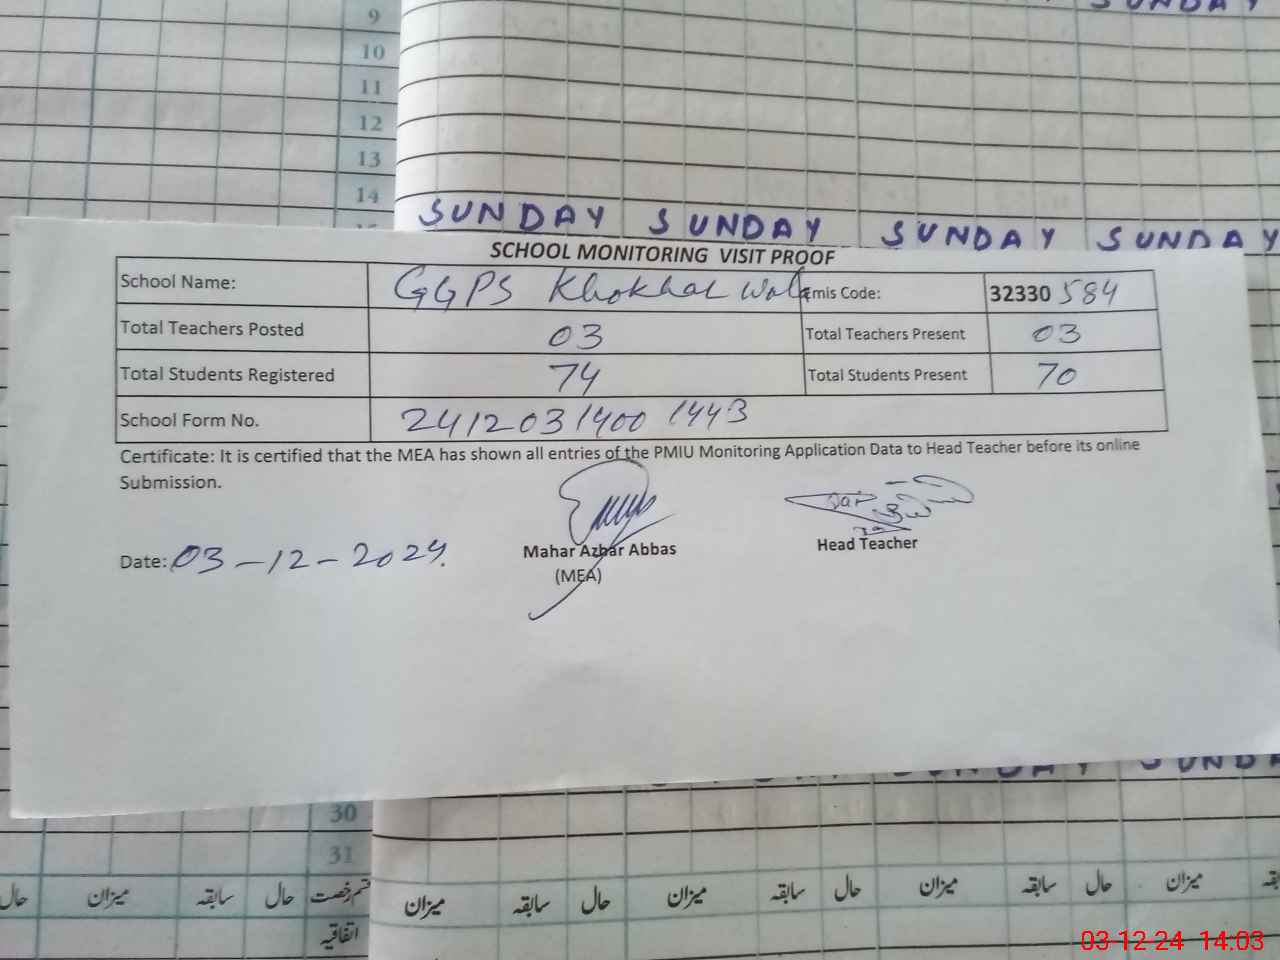 SUNDAY
9
10
11
12
13
14
SUNDAY SUNDAY SUNDAY SUNDAY
SCHOOL MONITORING VISIT PROOF
School Name: GGPS Khokhar Wala Emis Code: 32330 584
Total Teachers Posted 03 Total Teachers Present 03
Total Students Registered 74 Total Students Present 70
School Form No. 241203 1400 1443
Certificate: It is certified that the MEA has shown all entries of the PMIU Monitoring Application Data to Head Teacher before its online
Submission.
Date: 03-12-2024.
Mahar Azhar Abbas
(MEA)
Head Teacher
SUNDAY SUNDA
30
31
حال میزان سابقہ حال قسم رخصت
میزان سابقہ حال میزان سابقہ حال میزان سابقہ حال میزان
اتفاقیہ
03-12-24 14:03